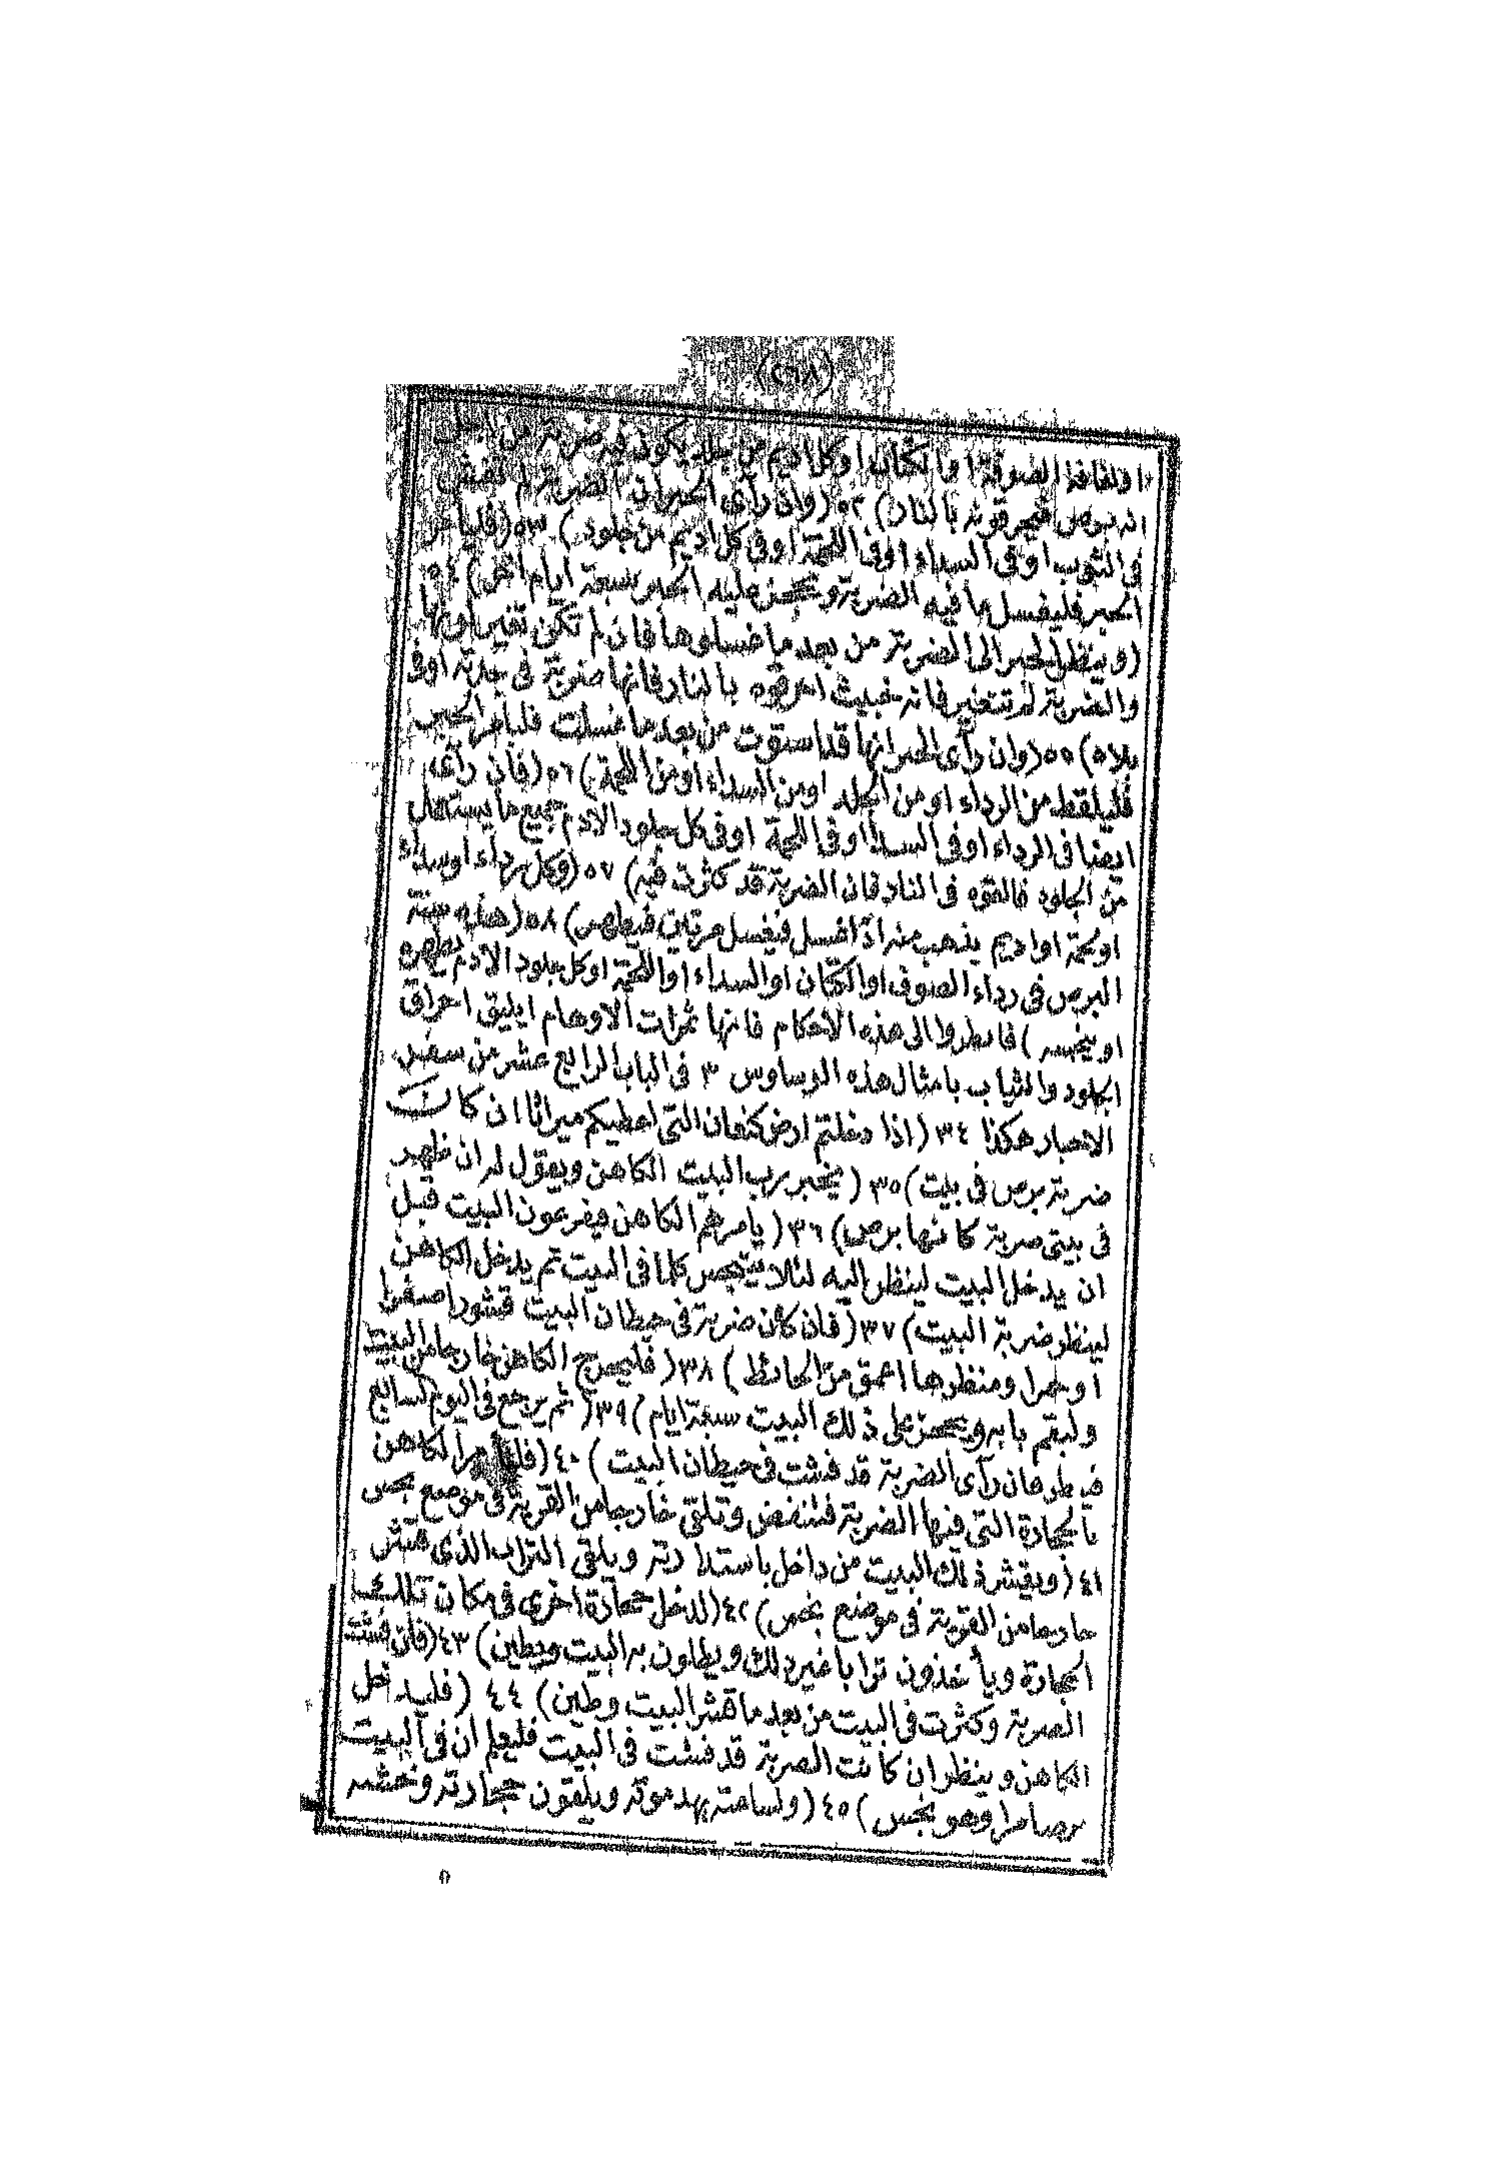 (٢٦٨)
او لفافة الصوفة او الكتان او كل اديم من جلد يكون فيه ضربة من اجل
البرص فيحرقونه بالنار) ٥٣ (وان رأى الحبر ان الضربة لم تفش
فى الثوب او فى السداء او فى اللحمة او فى كل اديم من جلود) ٥٤ (فليأمر
الحبر فليغسل ما فيه الضربة ويحجز عليه الحبر سبعة ايام اخر) ٥٥
(وينظر الحبر الى الضربة من بعد ما غسلوها فان لم تكن تغير لونها
والضربة لم تتغير فانه خبيث احرقوه بالنار فانها ضربة فى جدته او فى
بلاه) ٥٥ (وان رأى الحبر انها قد استوت من بعد ما غسلت فليأمر الحبر
فليلقط من الرداء او من الجلد او من السداء او من اللحمة) ٥٦ (فان رأى
ايضا فى الرداء او فى السداء او فى اللحمة او فى كل جلود الادم جميع ما يستعمل
من الجلود فالقوه فى النار فان الضربة قد كثرت فيه) ٥٧ (وكل رداء او سداء
او لحمة او اديم يذهب منه اذا غسل فيغسل مرتان فيطهر) ٥٨ (هذه سنة
البرص فى رداء الصوف او الكتان او السداء او اللحمة او كل جلود الادم يطهره
او ينجسه) فانظروا الى هذه الاحكام فانها ثمرات الاوهام ايليق احراق
الجلود والثياب بامثال هذه الوساوس ٣ فى الباب الرابع عشر من سفر
الاحبار هكذا ٣٤ (اذا دخلتم ارض كنعان التى اعطيكم ميراثا ان كانت
ضربة برص فى بيت) ٣٥ (يخبر رب البيت الكاهن ويقول له ان ظهر
فى بيتى ضربة كانها برص) ٣٦ (يامرهم الكاهن فيفرغون البيت قبل
ان يدخل البيت لينظر اليه لئلا يتنجس كلما فى البيت ثم يدخل الكاهن
لينظر ضربة البيت) ٣٧ (فان كان ضربة فى حيطان البيت قشور اصفرا
او حمرا ومنظرها اعمق من الحائط) ٣٨ (فليخرج الكاهن خارجا من البيت
وليقم بابه ويحجز على ذلك البيت سبعة ايام) ٣٩ (ثم يرجع فى اليوم السابع
فينظر فان رأى الضربة قد فشت فى حيطان البيت) ٤٠ (فليأمر الكاهن
بالحجارة التى فيها الضربة فتنفض وتلقى خارجا من القرية فى موضع نجس
٤١ (ويقشر ذلك البيت من داخل باستدارته ويلقى التراب الذى قشر
خارجا من القرية فى موضع نجس) ٤٢ (لدخل حجارة اخرى فى مكان تلك
الحجارة ويأخذون ترابا غير ذلك ويطلون به البيت ويطين) ٤٣ (فان فشت
الضربة وكثرت فى البيت من بعد ما قشر البيت وطين) ٤٤ (فليدخل
الكاهن وينظر ان كانت الضربة قد فشت فى البيت فليعلم ان فى البيت
برصا مرا وهو نجس) ٤٥ (ولساعته يهدمونه ويلقون حجارته وخشبه